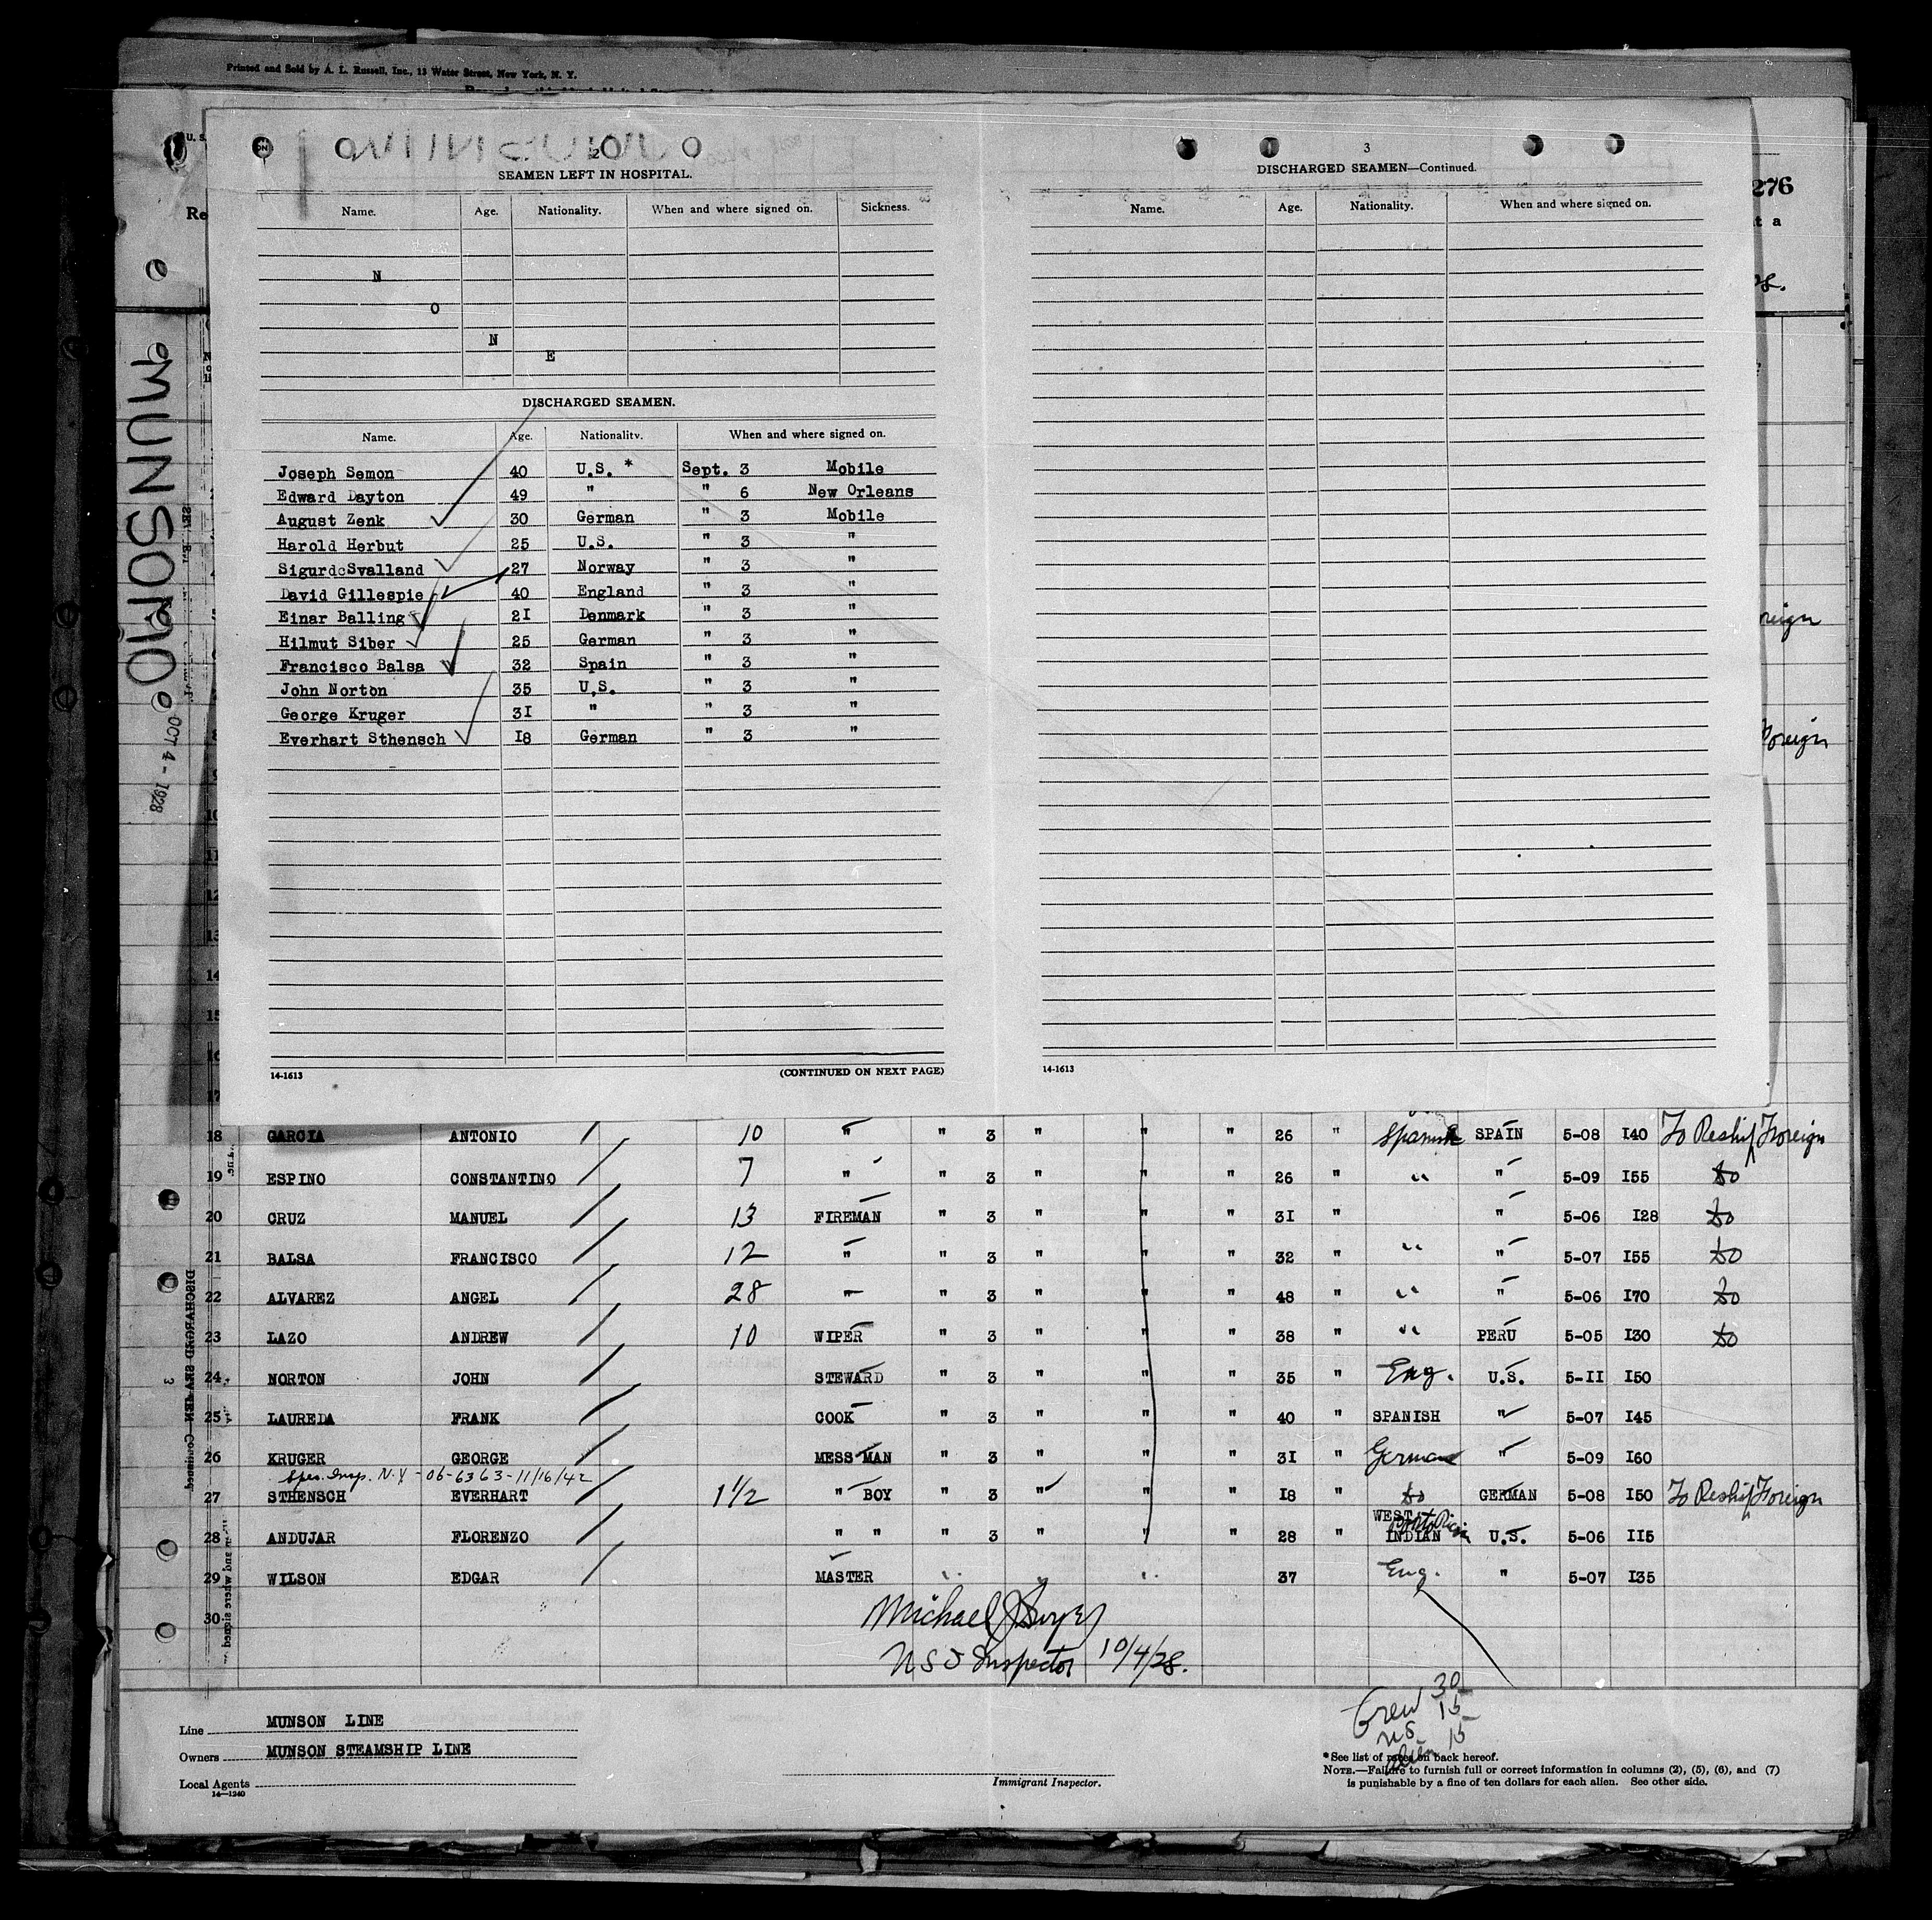 Printed and Sold by A. L. Russell, Inc., 13 Water Street, New York, N. Y.
276
MUNSOMO
OCT 4 - 1928
2
SEAMEN LEFT IN HOSPITAL.
Name. Age. Nationality. When and where signed on. Sickness.
N
O
N
E
DISCHARGED SEAMEN.
Name. Age. Nationality. When and where signed on.
Joseph Semon 40 U.S. * Sept. 3 Mobile
Edward Dayton 49 " " 6 New Orleans
August Zenk 30 German " 3 Mobile
Harold Herbut 25 U.S. " 3 "
Sigurd Svalland 27 Norway " 3 "
David Gillespie 40 England " 3 "
Einar Balling 21 Denmark " 3 "
Hilmut Siber 25 German " 3 "
Francisco Balsa 32 Spain " 3 "
John Norton 35 U.S. " 3 "
George Kruger 31 " " 3 "
Everhart Sthensch 18 German " 3 "
14-1613 (CONTINUED ON NEXT PAGE)
3
DISCHARGED SEAMEN—Continued.
Name. Age. Nationality. When and where signed on.
14-1613
18 GARCIA ANTONIO 10 " " 3 " " " 26 " Spanish SPAIN 5-08 140 To Reship Foreign
19 ESPINO CONSTANTINO 7 " " 3 " " " 26 " " " 5-09 155 do
20 CRUZ MANUEL 13 FIREMAN " 3 " " " 31 " " 5-06 128 do
21 BALSA FRANCISCO 12 " " 3 " " " 32 " " " 5-07 155 do
22 ALVAREZ ANGEL 28 " " 3 " " " 48 " " " 5-06 170 do
23 LAZO ANDREW 10 WIPER " 3 " " " 38 " " PERU 5-05 130 do
24 NORTON JOHN STEWARD " 3 " " " 35 " Eng. U.S. 5-11 150
25 LAUREDA FRANK COOK " 3 " " " 40 " SPANISH " 5-07 145
26 KRUGER GEORGE MESS MAN " 3 " " " 31 " German " 5-09 160
Spec. Insp. N.Y - 06-6363-11/16/42
27 STHENSCH EVERHART 1 1/2 " BOY " 3 " " " 18 " do GERMAN 5-08 150 To Reship Foreign
28 ANDUJAR FLORENZO " " " 3 " " " 28 " WEST INDIAN Porto Rican U.S. 5-06 115
29 WILSON EDGAR MASTER " " " 37 Eng. " 5-07 135
30
Michael
Inspector 10/4/28.
Crew 30
US 15
alien 15
Line MUNSON LINE
Owners MUNSON STEAMSHIP LINE
Local Agents
14-1240
Immigrant Inspector.
*See list of races on back hereof.
NOTE.—Failure to furnish full or correct information in columns (2), (5), (6), and (7)
is punishable by a fine of ten dollars for each alien. See other side.